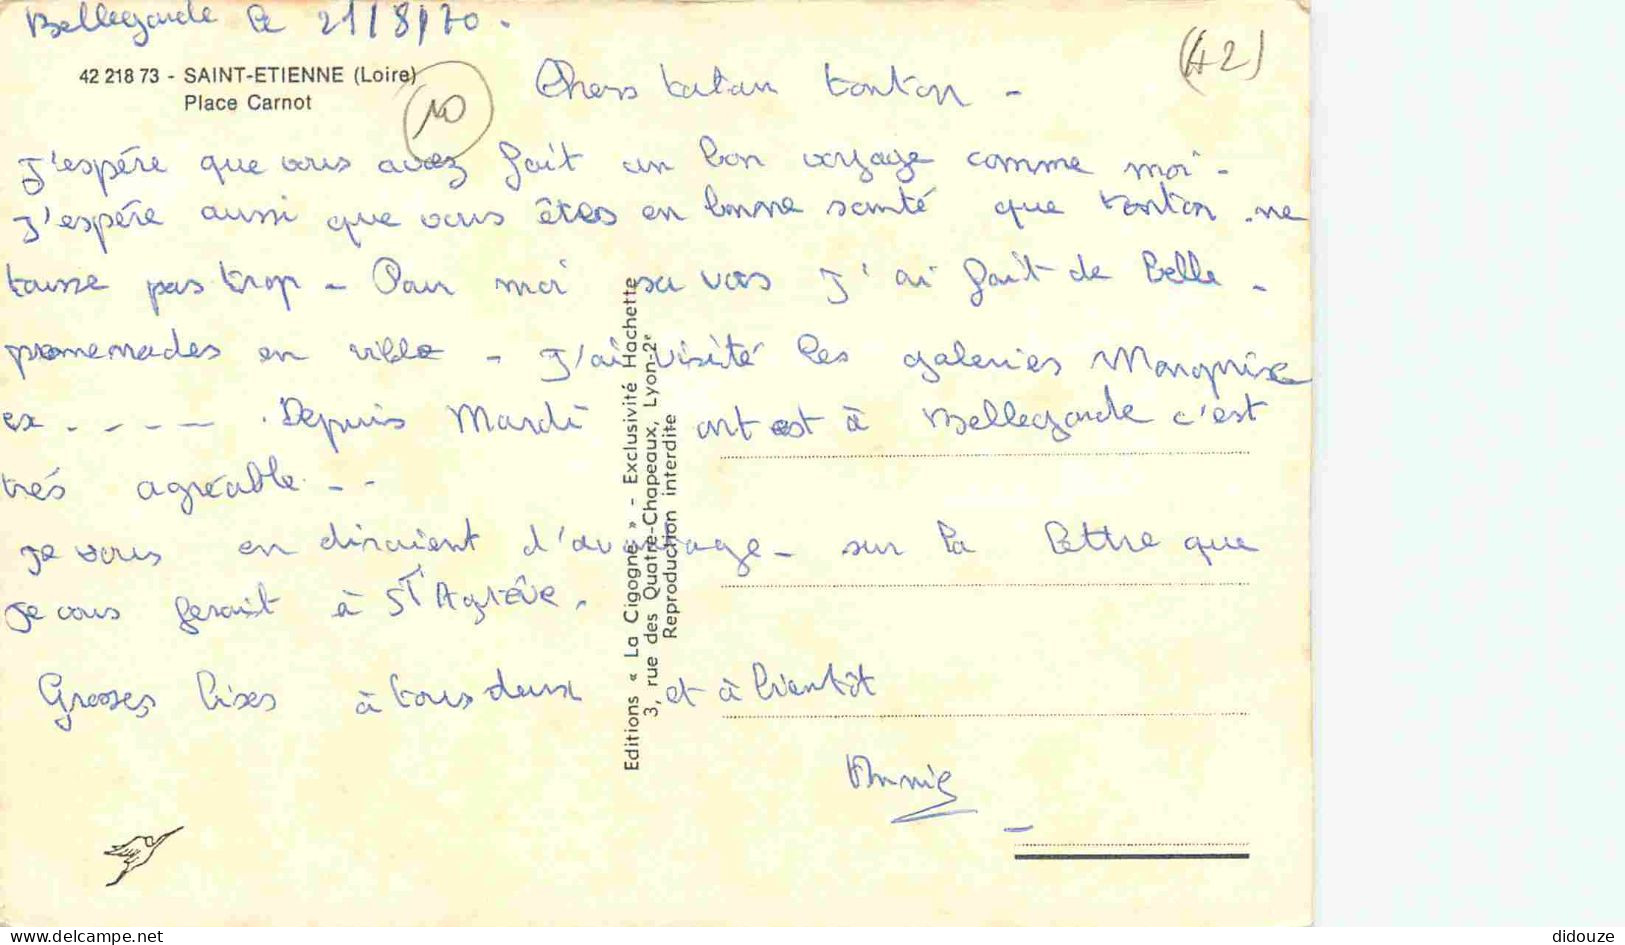 Bellegarde le 21/8/70.
42 218 73 - SAINT-ETIENNE (Loire)
Place Carnot
10
(42)
Chers tatan tonton -
J'espére que vous avez fait un bon voyage comme moi -
J'espére aussi que vous êtes en bonne santé que tonton ne
tousse pas trop - Pour moi sa vas J'ai fait de belle -
promenades en ville - J'ai visité les galeries Marquise
ex - - - - . Depuis Mardi ont est à Bellegarde c'est
trés agréable - -
je vous en diraient d'avantage - sur la lettre que
je vous ferait à St Agrêve.
Grosses bises à tous deux et à bientôt
Annie
Editions « La Cigogne » - Exclusivité Hachette
3, rue des Quatre-Chapeaux, Lyon-2e
Reproduction interdite
delcampe.net
didouze